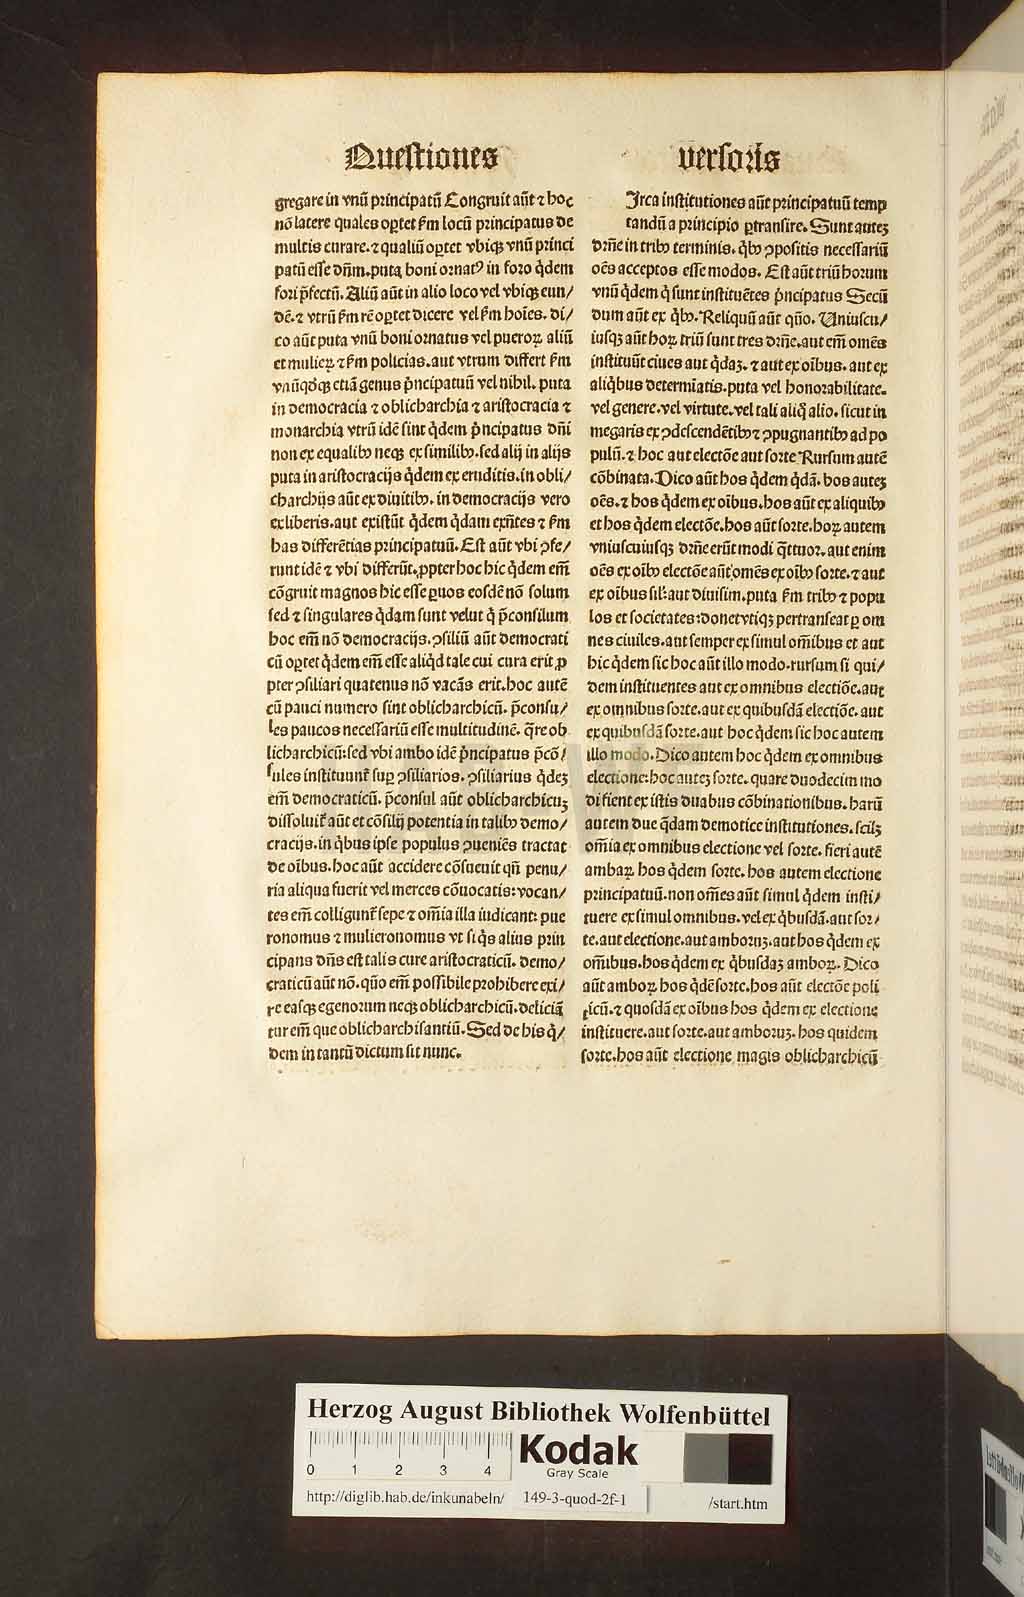 Questiones versoris
gregare in vnũ principatũ Congruit aũt ⁊ hoc
nõ latere quales oꝑtet ẜm locũ principatus de
multis curare. ⁊ qualiũ oꝑtet vbiqꝫ vnũ princi
patũ esse dñm. puta boni ornatꝰ in foro q̇dem
fori p̄fectũ. Aliũ aũt in alio loco vel vbiqꝫ eun/
dẽ. ⁊ vtrũ ẜm rẽ oꝑtet dicere vel ẜm hoĩes. di/
co aũt puta vnũ boni ornatus vel pueroꝝ aliũ
et mulieꝝ ⁊ ẜm policias. aut vtrum differt ẜm
vnãq̇qꝫ etiã genus p̀ncipatuũ vel nihil. puta
in democracia ⁊ oblicharchia ⁊ aristocracia ⁊
monarchia vtrũ idẽ sint q̇dem p̀ncipatus dñi
non ex equalibꝰ neqꝫ ex similibꝰ. sed alij in alijs
puta in aristocracijs q̇dem ex eruditis. in obli/
charchijs aũt ex diuitibꝰ. in democracijs vero
ex liberis. aut existũt q̇dem q̇dam exñtes ⁊ ẜm
has differẽtias principatuũ. Est aũt vbi ꝯfe/
runt idẽ ⁊ vbi differũt. ꝓpter hoc hic q̇dem em̃
cõgruit magnos hic esse ꝑuos eosdẽ nõ solum
sed ⁊ singulares q̇dam sunt velut q̇ p̄consilum
hoc em̃ nõ democracijs. ꝯsiliũ aũt democrati
cũ oꝑtet q̇dem em̃ esse aliq̇d tale cui cura erit ꝓ
pter ꝯsiliari quatenus nõ vacãs erit. hoc autẽ
cũ pauci numero sint oblicharchicũ. p̄consu/
les paucos necessariũ esse multitudinẽ. q̃re ob
licharchicũ: sed vbi ambo idẽ p̀ncipatus p̄cõ/
sules instituunt᷑ suꝑ ꝯsiliarios. ꝯsiliarius q̇deꝫ
em̃ democraticũ. p̄consul aũt oblicharchicuꝫ
dissoluit᷑ aũt et cõsilij potentia in talibꝰ demo/
cracijs. in q̇bus ipse populus ꝯueniẽs tractat
de oĩbus. hoc aũt accidere cõsueuit qñ penu/
ria aliqua fuerit vel merces cõuocatis: vocan/
tes em̃ colligunt᷑ sepe ⁊ om̃ia illa iudicant: pue
ronomus ⁊ mulieronomus vt si q̇s alius prin
cipans dñs est talis cure aristocraticũ. demo/
craticũ aũt nõ. q̃uo em̃ possibile prohibere exi/
re easqꝫ egenorum neqꝫ oblicharchicũ. deliciã
tur em̃ que oblicharchisantiũ. Sed de his q̇/
dem in tantũ dictum sit nunc.
Irca institutiones aũt principatuũ temp
tandũ a principio ꝑtransire. Sunt auteꝫ
drñe in tribꝰ terminis. q̇bꝰ ꝯpositis necessariũ
oẽs acceptos esse modos. Est aũt triũ horum
vnũ q̇dem q̇ sunt instituẽtes p̀ncipatus Secũ
dum aũt ex q̇bꝰ. Reliquũ aũt q̃uo. Uniuscu/
iusqꝫ aũt hoꝝ triũ sunt tres drñe. aut em̃ omẽs
instituũt ciues aut q̇daꝫ. ⁊ aut ex oĩbus. aut ex
aliq̇bus determiatis. puta vel honorabilitate.
vel genere. vel virtute. vel tali aliq̇ alio. sicut in
megaris ex ꝯdescendẽtibꝰ ⁊ ꝯpugnantibꝰ ad po
pulũ. ⁊ hoc aut electõe aut sorte Rursum autẽ
cõbinata. Dico aũt hos q̇dem q̇dã. hos auteꝫ
oẽs. ⁊ hos q̇dem ex oĩbus. hos aũt ex aliquibꝰ
et hos q̇dem electõe. hos aũt sorte. hoꝝ autem
vniuscuiusqꝫ drñe erũt modi q̃ttuor. aut enim
oẽs ex oĩbꝰ electõe aũt omẽs ex oĩbꝰ sorte. ⁊ aut
ex oĩbus sil: aut diuisim. puta ẜm tribꝰ ⁊ popu
los et societates: donet vtiqꝫ pertranseat ꝑ om
nes ciuiles. aut semper ex simul om̃ibus et aut
hic q̇dem sic hoc aũt illo modo. rursum si qui/
dem instituentes aut ex omnibus electiõe. aut
ex omnibus sorte. aut ex quibusdã electiõe. aut
ex quibusdã sorte. aut hoc q̇dem sic hoc autem
illo modo. Dico autem hoc q̇dem ex omnibus
electione: hoc auteꝫ sorte. quare duodecim mo
di fient ex istis duabus cõbinationibus. harũ
autem due q̇dam demotice institutiones. scilꝫ
om̃ia ex omnibus electione vel sorte. fieri autẽ
ambaꝝ hos q̇dem sorte. hos autem electione
principatuũ. non om̃es aũt simul q̇dem insti/
tuere ex simul omnibus. vel ex q̇busdã. aut sor/
te. aut electione. aut amboruꝫ. aut hos q̇dem ex
om̃ibus. hos q̇dem ex q̇busdaꝫ amboꝝ. Dico
aũt amboꝝ hos q̇dẽ sorte. hos aũt electõe poli
ticũ. ⁊ quosdã ex oĩbus hos q̇dem ex electione
instituere. aut sorte. aut amboruꝫ. hos quidem
sorte. hos aũt electione magis oblicharchicũ
Herzog August Bibliothek Wolfenbüttel
0 1 2 3 4
Kodak
Gray Scale
http://diglib.hab.de/inkunabeln/ 149-3-quod-2f-1 /start.htm